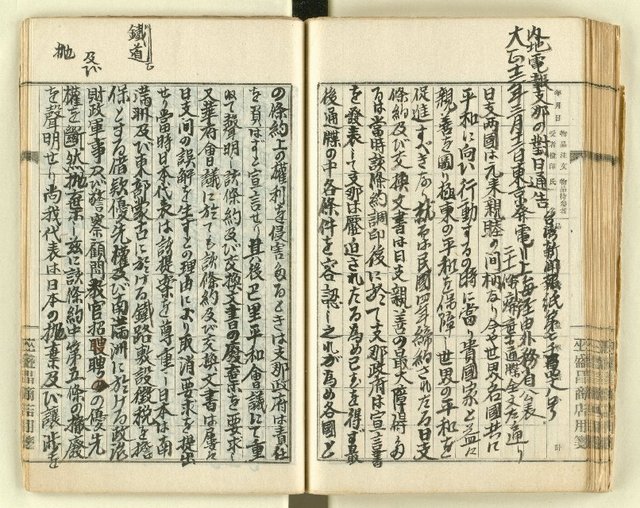 内地電報支那の對日通告
台湾新聞報紙第七
大正十二年三月十二日東京発電
上海産由外務省公表
日支両國は元来親睦の間柄なり今や世界各國共に
平和に向い行動するの時に當り貴國家と益に
親善を圖り極東の平和を保障し世界の平和を
促進すべきなり就ては民國四年締約されたる日支
條約及び交換文書は日支親善の最大障碍たり
るは當時該條約調印後に於て支那政府は宣言書
を發表して支那は壓迫されたる為め已むを得ず最
後通牒の中各條件を容認し之れが為め各國と
の條約上の權利を侵害するときは支那政府は責任
を負はずと宣言せり其後巴里平和會議にて重
ねて聲明し該條約及び交換文書の廃棄を要求し
又華府會議に於ても該條約及び交換文書は屢々
日支間の誤解を生ずとの理由により取消要求を提出
せり當時日本代表は該提案を尊重し日本は南
満洲及び東部蒙古に於ける鐵路敷設徴税を擔
保とする借款優先權及び南満洲に於ける政治
財政軍事及び警察顧問教官招聘の優先
權を斷然拋棄し茲に該條約中第五條の撤廃
を聲明せり尚我代表は日本の拋棄及び讓歩を
鐵道
及び
拋
坐盛昌商店用箋